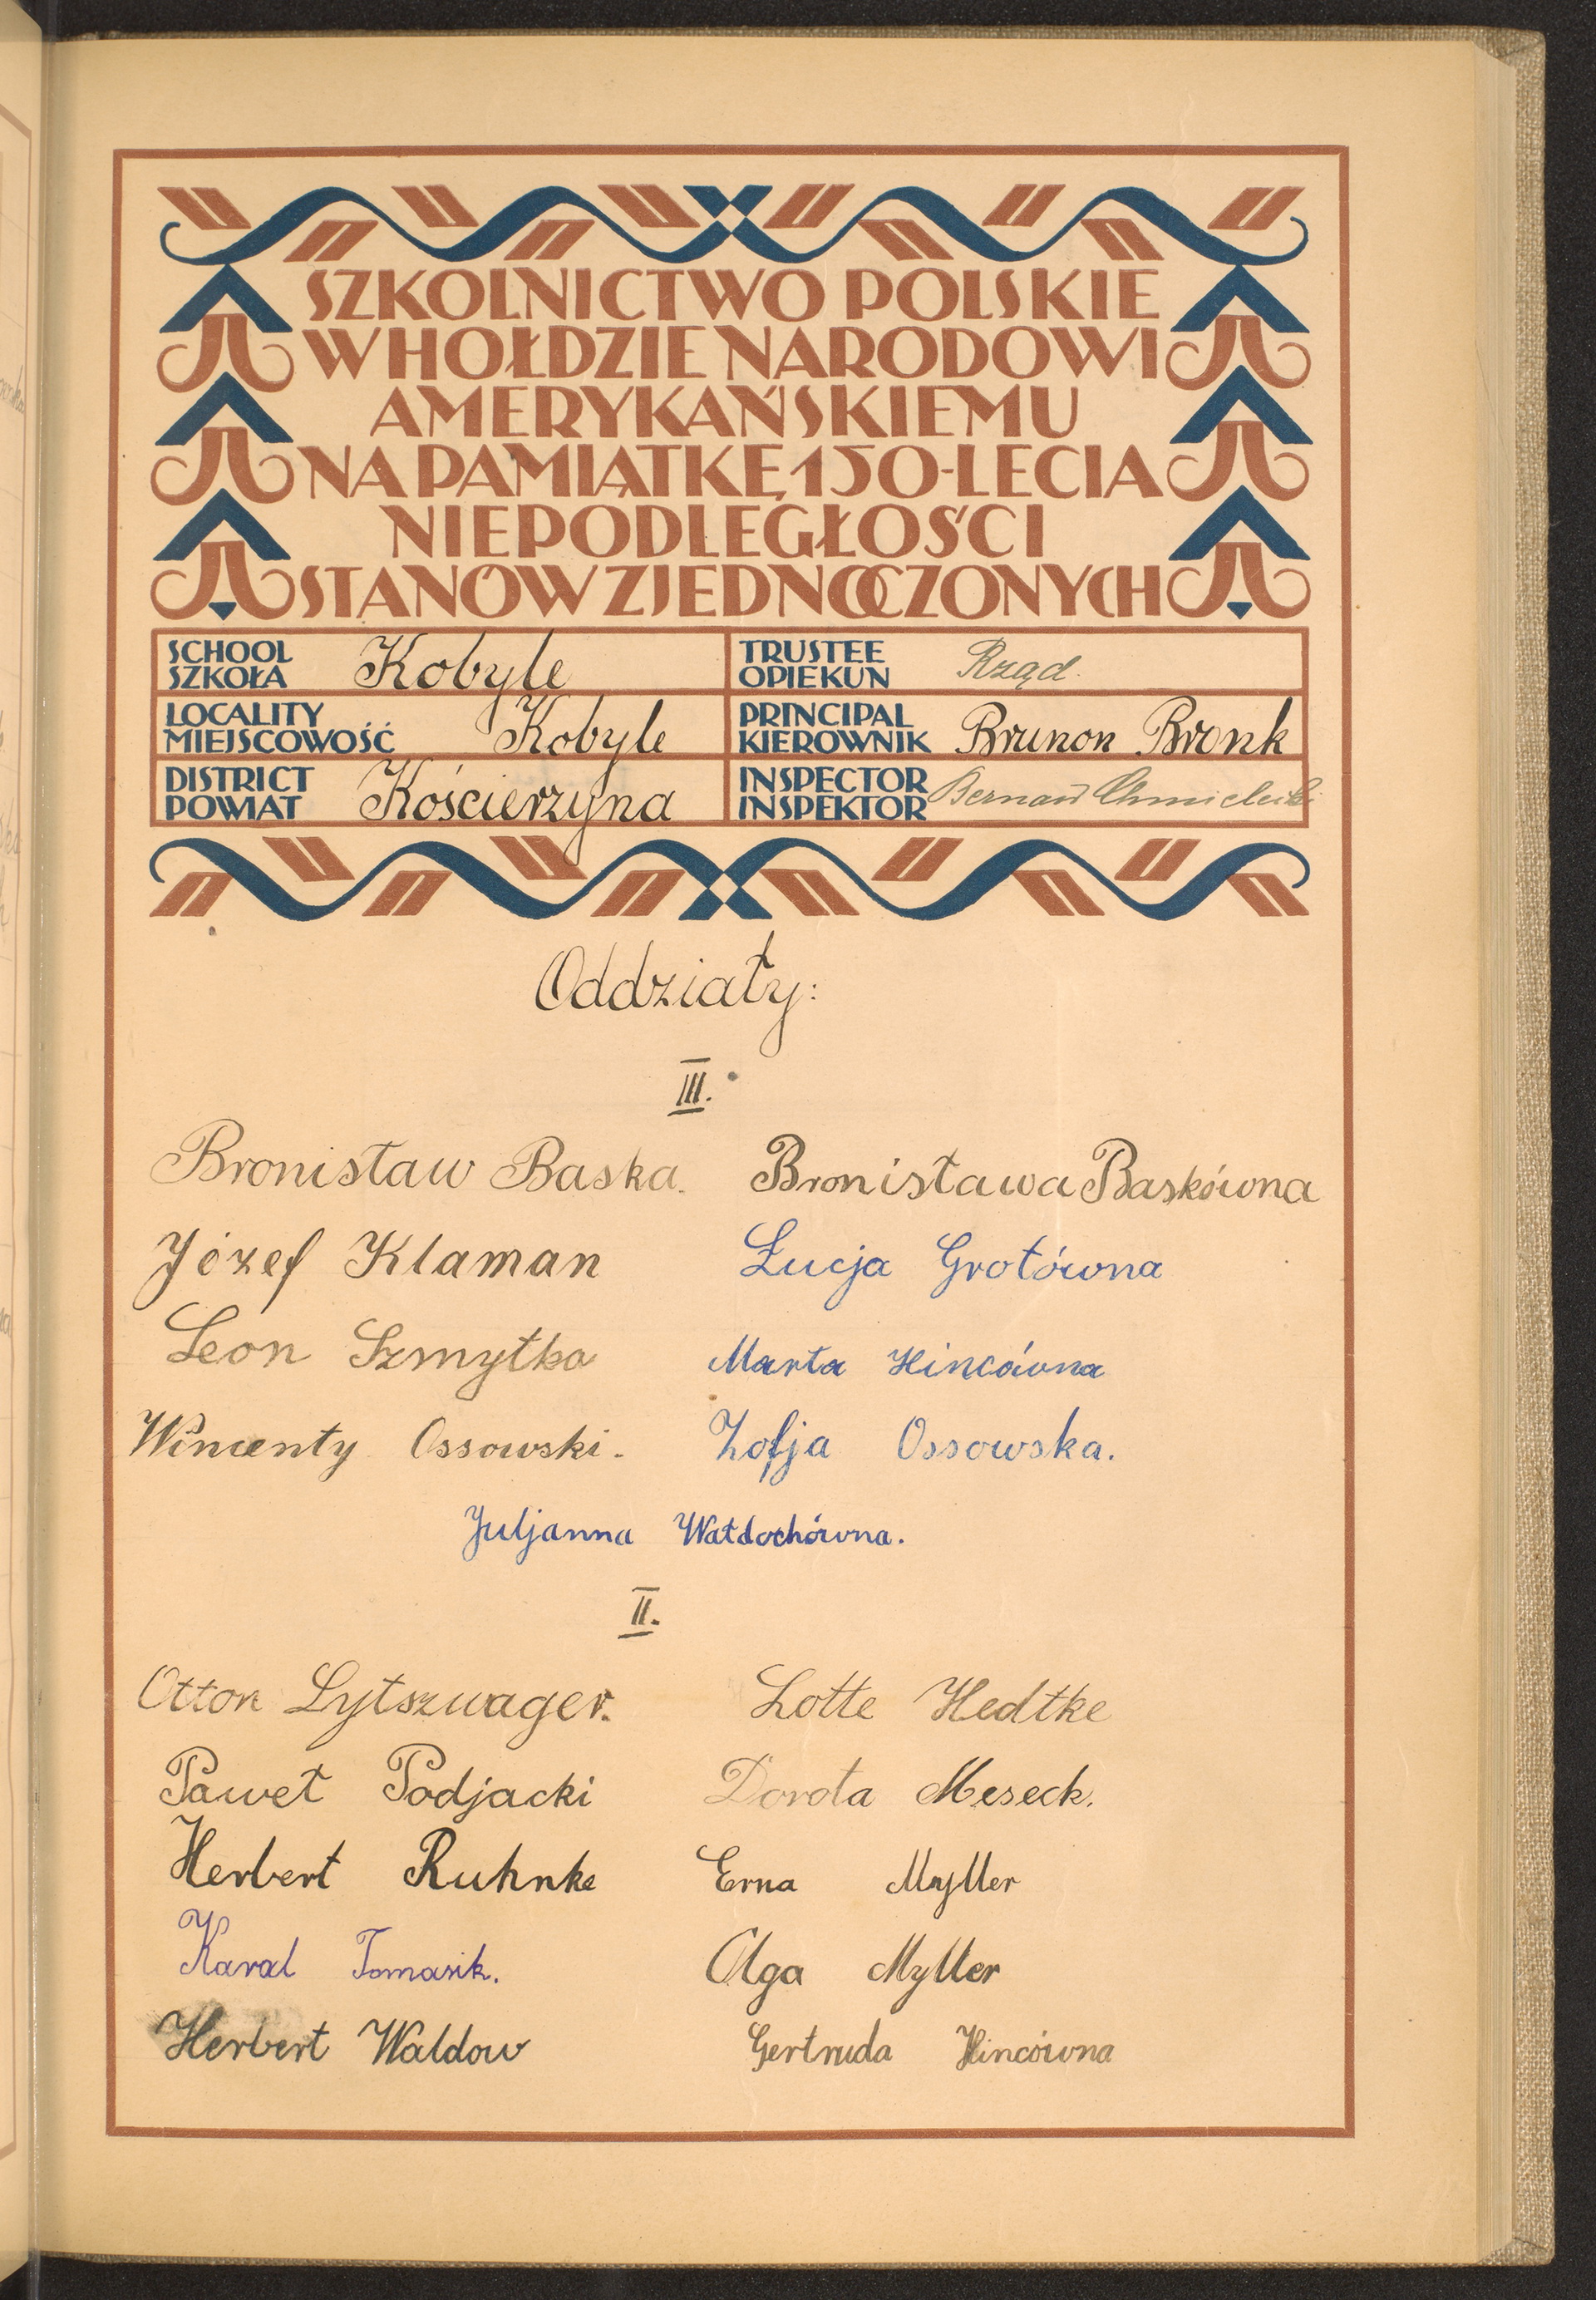 SZKOLNICTWO POLSKIE
W HOŁDZIE NARODOWI
AMERYKAŃSKIEMU
NA PAMIĄTKĘ 150-LECIA
NIEPODLEGŁOŚCI
STANÓW ZJEDNOCZONYCH
SCHOOL SZKOŁA Kobyle TRUSTEE OPIEKUN Rząd.
LOCALITY MIEJSCOWOŚĆ Kobyle PRINCIPAL KIEROWNIK Brunon Bronk
DISTRICT POWIAT Kościerzyna INSPECTOR INSPEKTOR Bernard Chmielecki
Oddziały:
III.
Bronisław Baska. Bronisława Baskówna
Józef Klaman Łucja Grotówna
Leon Szmytka Marta Hincówna
Wincenty Ossowski. Zofja Ossowska.
Juljanna Wałdochówna.
II.
Otton Lytszwager. Lotte Hedtke
Paweł Podjacki Dorota Meseck.
Herbert Ruhnke Erna Myller
Karol Tomasik. Olga Myller
Herbert Waldow Gertruda Hincówna